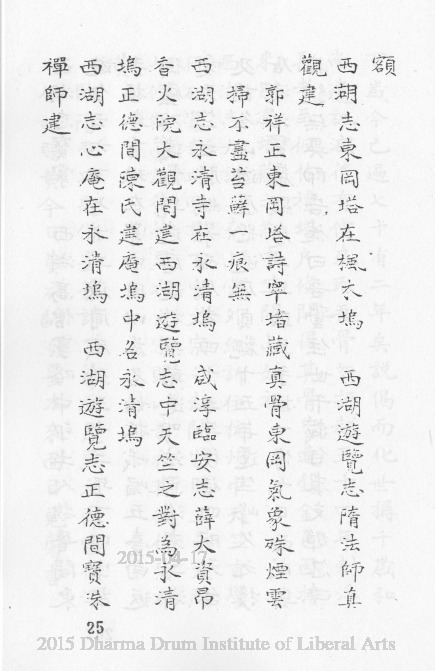 額
西湖志東岡塔在楓木塢　西湖遊覽志隋法師真
觀建
郭祥正東岡塔詩窣堵藏真骨東岡氣象殊煙雲
掃不盡苔蘚一痕無
西湖志永清寺在永清塢　咸淳臨安志薛大資昂
香火院大觀間建西湖遊覽志中天竺之對為永清
塢正德間陳氏建庵塢中名永清塢
西湖志心庵在永清塢　西湖遊覽志正德間寶洙
禪師建
25
2015-04-17
2015 Dharma Drum Institute of Liberal Arts